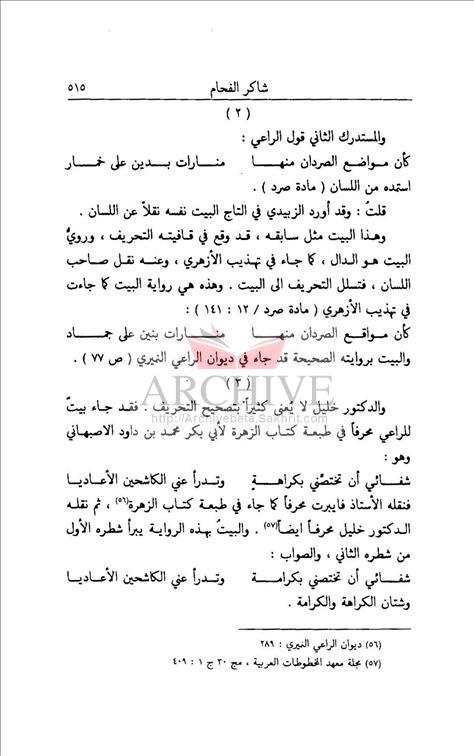 شاكر الفحام ٥١٥
( ٢ )
والمستدرك الثاني قول الراعي :
كأن مـواضع الصردان منهـا منـارات بـدين على خمـار
استمده من اللسان ( مادة صرد ) .
قلتُ : وقد أورد الزبيدي في التاج البيت نفسه نقلاً عن اللسان .
وهـذا البيت مثل سابقـه ، قـد وقع في قـافيتـه التحريف ، ورويُّ
البيت هـو الدال ، كما جـاء في تهـذيب الأزهري ، وعنـه نقـل صـاحب
اللسان ، فتسلل التحريف الى البيت . وهذه هي رواية البيت كما جاءت
في تهذيب الأزهري ( مادة صرد / ١٢ : ١٤١ ) :
كأن مـواقـع الصردان منهـا منـارات بنين على جمـاد
والبيت بروايته الصحيحة قد جاء في ديوان الراعي النميري ( ص ٧٧ ) .
( ٣ )
ARCHIVE
http://Archivebeta.Sakhrit.com
والدكتور خليل لا يُعنى كثيراً بتصحيح التحريف . فقـد جـاء بيتٌ
للراعي محرفاً في طبعـة كتـاب الزهرة لأبي بكر محمـد بن داود الاصبهـاني
وهو :
شفـائي أن تختصّني بكراهـةٍ وتـدرأ عني الكاشحين الأعـاديـا
فنقله الأستاذ فايبرت محرفاً كما جاء في طبعة كتاب الزهرة(٥٦) ، ثم نقلـه
الـدكتور خليل محرفـاً ايضاً(٥٧) . والبيتُ بهـذه الروايـة يبرأ شطره الأول
من شطره الثاني ، والصواب :
شفـائي أن تختصني بكرامـة وتـدرأ عني الكاشحين الأعـاديـا
وشتان الكراهة والكرامة .
(٥٦) ديوان الراعي النميري : ٢٨٩
(٥٧) مجلة معهد المخطوطات العربية ، مج ٣٠ ج ١ : ٤٠٩